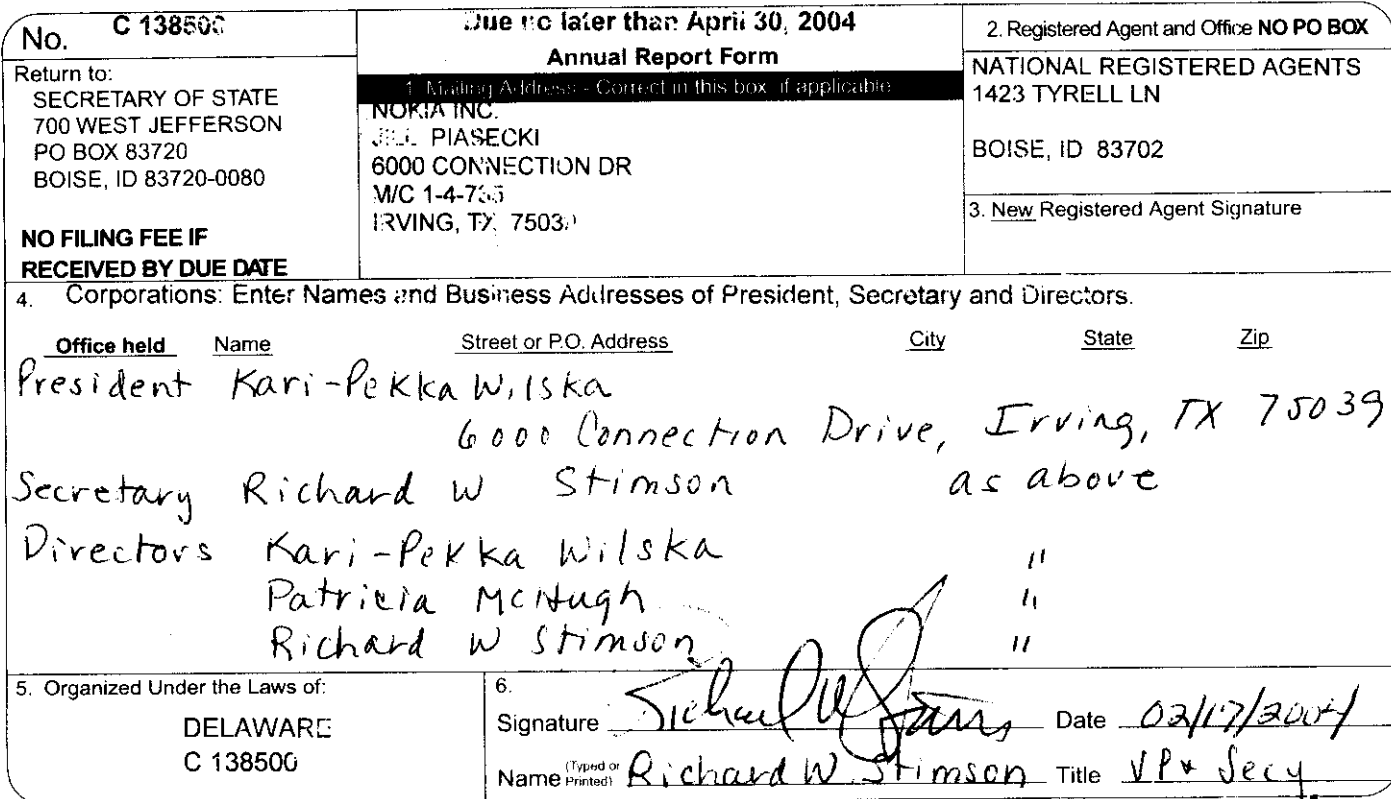 No. C 138500
Return to:
SECRETARY OF STATE
700 WEST JEFFERSON
PO BOX 83720
BOISE, ID 83720-0080
NO FILING FEE IF
RECEIVED BY DUE DATE
Due no later than April 30, 2004
Annual Report Form
1. Mailing Address - Correct in this box if applicable
NOKIA INC.
JILL PIASECKI
6000 CONNECTION DR
M/C 1-4-735
IRVING, TX 75039
2. Registered Agent and Office NO PO BOX
NATIONAL REGISTERED AGENTS
1423 TYRELL LN
BOISE, ID 83702
3. New Registered Agent Signature
4. Corporations: Enter Names and Business Addresses of President, Secretary and Directors.
Office held Name Street or P.O. Address City State Zip
President Kari-Pekka Wilska
6000 Connection Drive, Irving, TX 75039
Secretary Richard W Stimson as above
Directors Kari-Pekka Wilska "
Patricia McHugh "
Richard W Stimson "
5. Organized Under the Laws of:
DELAWARE
C 138500
6.
Signature Date 02/17/2004
Name (Typed or Printed) Richard W. Stimson Title VP & Secy.